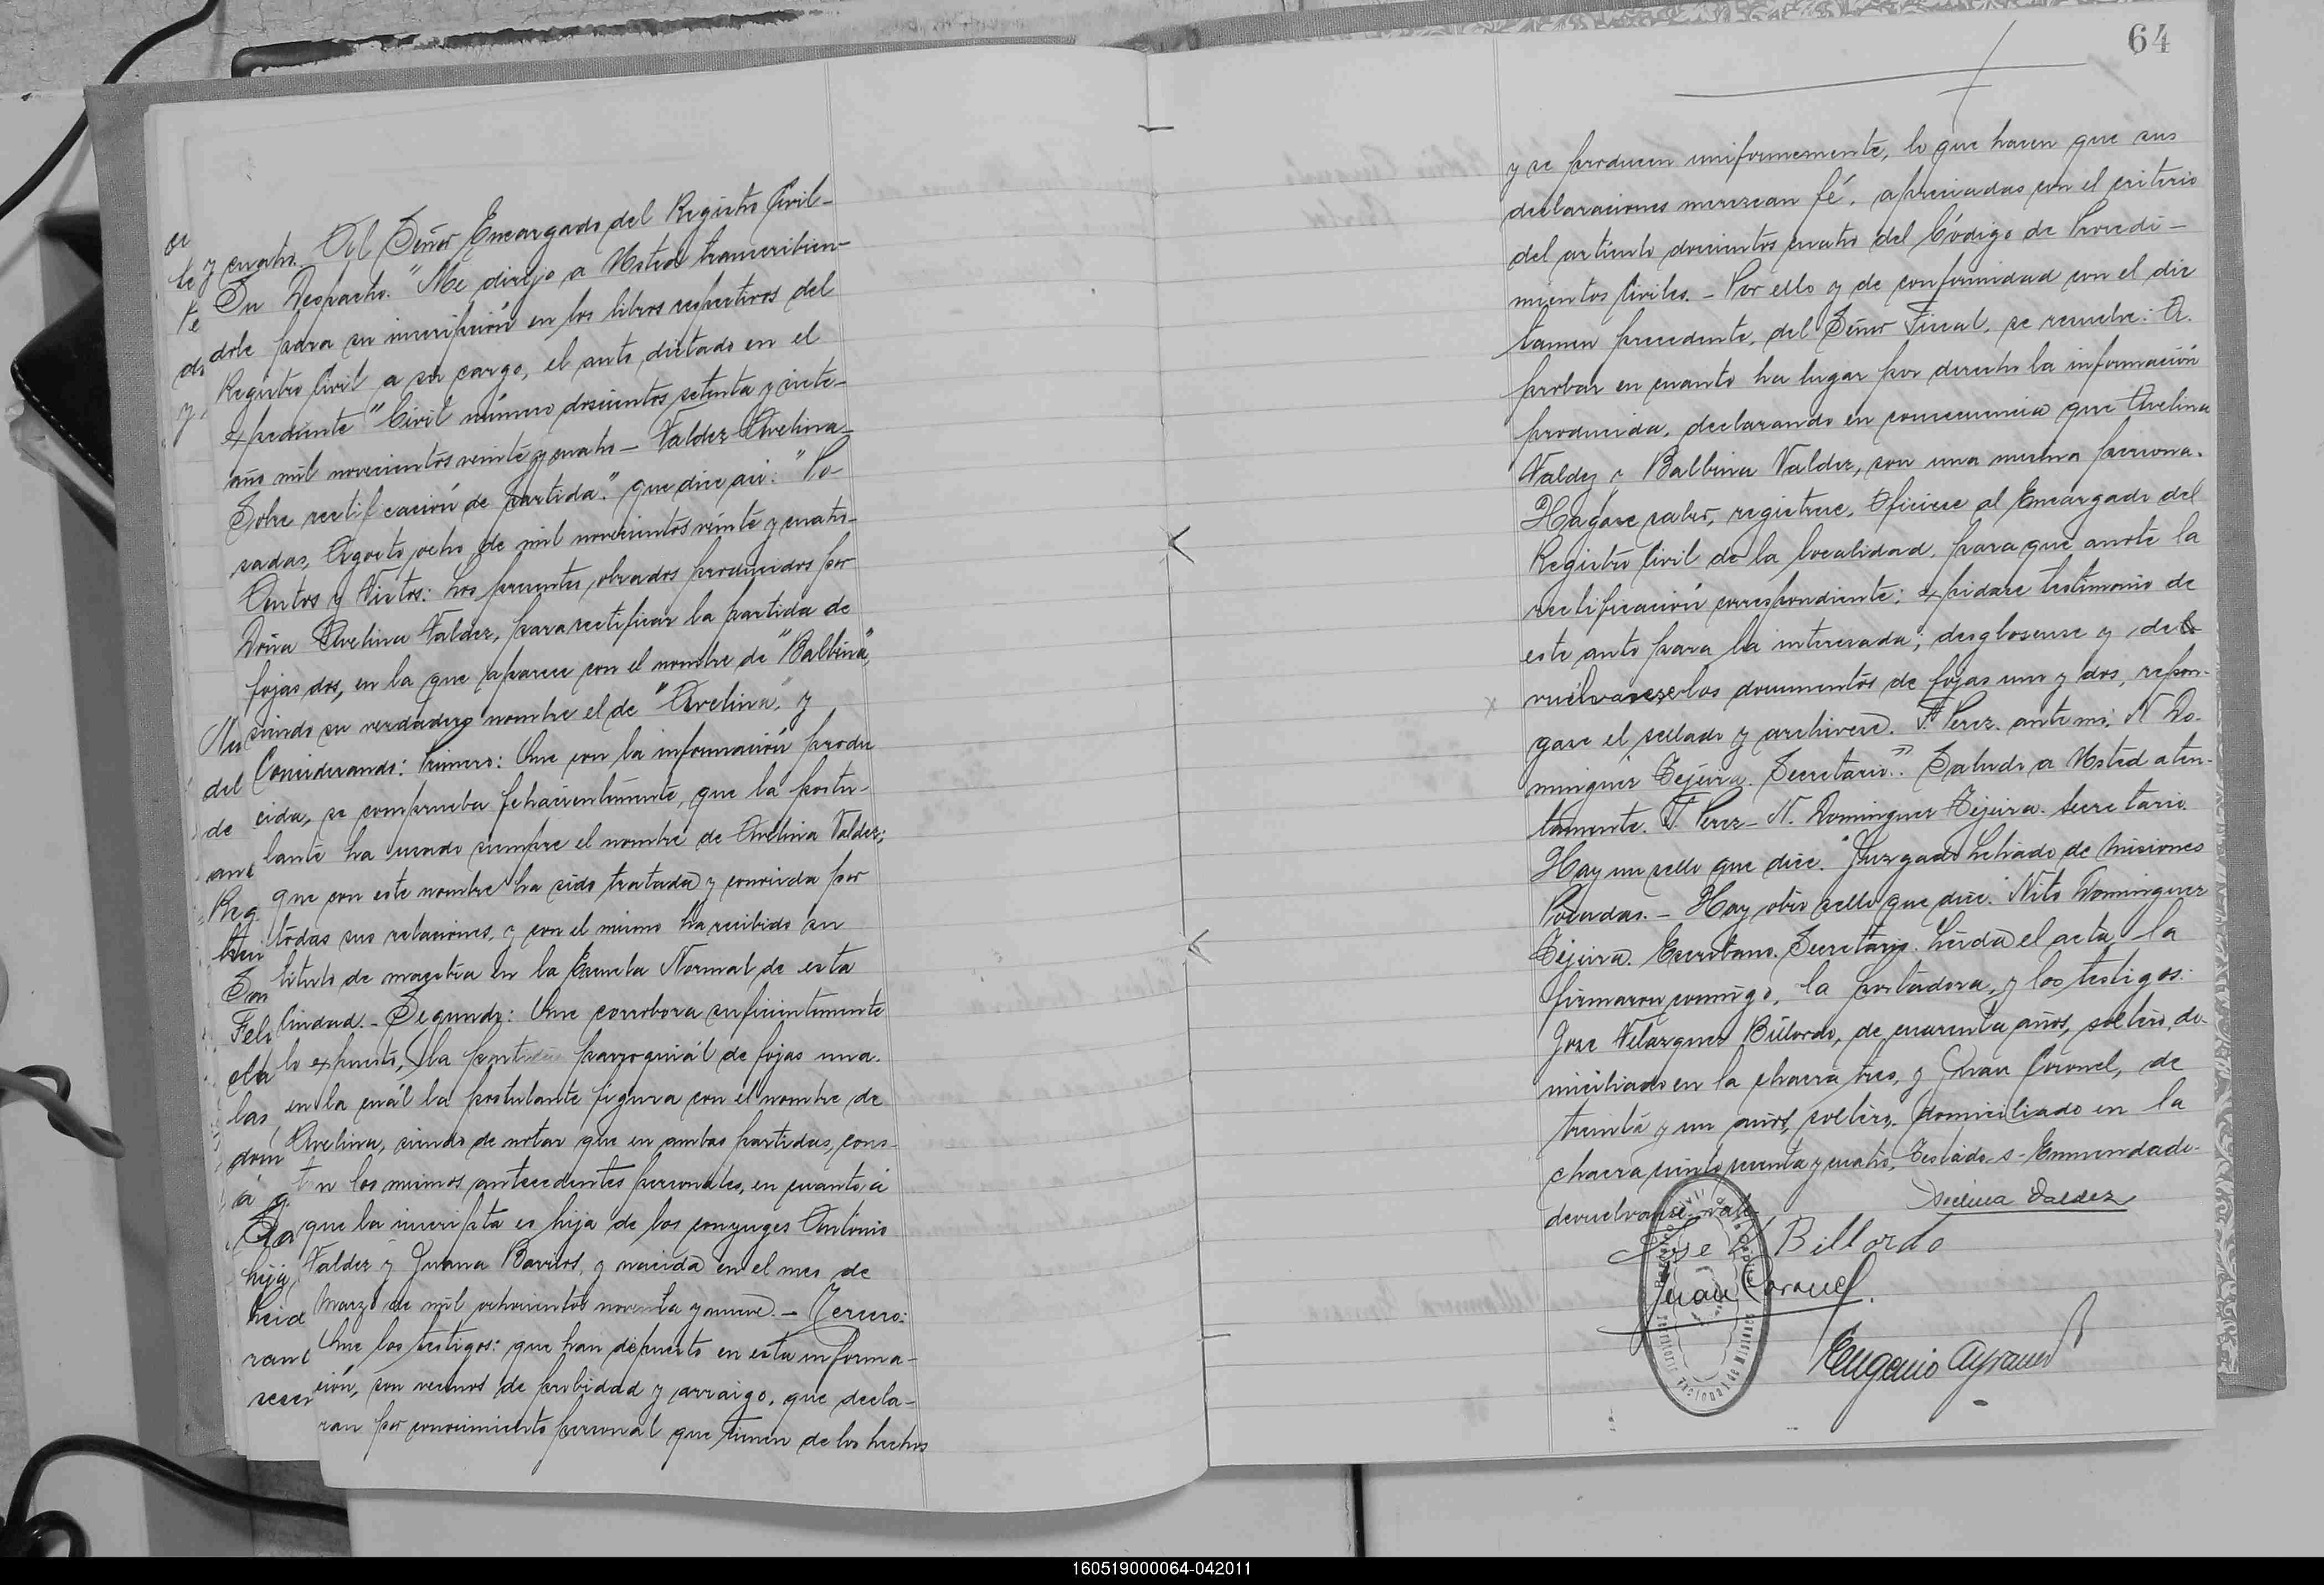 64
y cuatro. Al Señor Encargado del Registro Civil-
Su Despacho. "Me dirijo a Usted transcribien-
dole para su inscripción en los libros respectivos del
Registro Civil a su cargo, el auto dictado en el
expediente "Civil número doscientos setenta y siete-
año mil novecientos veinte y cuatro - Valdez Avelina-
Sobre rectificación de partida." que dice asi: "Po-
sadas, Agosto ocho de mil novecientos veinte y cuatro-
Autos y Vistos: Los presentes obrados producidos por
Doña Avelina Valdez, para rectificar la partida de
fojas dos, en la que aparece con el nombre de "Balbina",
siendo su verdadero nombre el de "Avelina", y
Considerando: Primero: Que con la información produ
cida, se comprueba fehacientemente, que la postu-
lante ha usado siempre el nombre de Avelina Valdez;
que con este nombre ha sido tratada y conocida por
todas sus relaciones, y con el mismo ha recibido su
titulo de maestra en la Escuela Normal de esta
Ciudad. - Segundo: Que corrobora suficientemente
lo expuesto, la partida parroquiál de fojas una.
en la cuál la postulante figura con el nombre de
Avelina, siendo de notar que en ambas partidas, cons-
tan los mismos antecedentes personales, en cuanto á
que la inscripta es hija de los conyuges Antonio
Valdez y Juana Barrios, y nacida en el mes de
Marzo de mil ochocientos noventa y nueve. - Tercero:
Que los testigos: que han depuesto en esta informa-
ción, son vecinos de probidad y arraigo, que decla-
ran por conocimiento personal que tienen de los hechos
y se producen uniformemente, lo que hacen que sus
declaraciones merezcan fé, apreciadas con el criterio
del artículo doscientos cuatro del Código de Procedi-
mientos Civiles. - Por ello y de conformidad con el dic
tamen precedente, del Señor Fiscal, se resuelve: A.
probar en cuanto ha lugar por derecho la información
producida, declarando en consecuencia que Avelina
Valdez y Balbina Valdez, son una misma persona.
Hagase saber, registrese, Ofíciese al Encargado del
Registro Civil de la localidad, para que anote la
rectificación correspondiente; expidase testimonio de
este auto para la interesada; desglosense y de
vuelvanse los documentos de fojas uno y dos, repon-
gase el sellado y archivese. F. Perez. ante mi; N Do-
minguez Tejeira. Secretario." Saludo a Usted aten-
tamente. F. Perez - N. Dominguez Tejeira. Secretario.
Hay un sello que dice. "Juzgado Letrado de Misiones
Posadas. - Hay otro sello que dice. Nito Dominguez
Tejeira. Escribano. Secretario. Leída el acta la
firmaron conmigo, la portadora, y los testigos:
Jose Velazquez Billordo, de cuarenta años, soltero, do-
miciliado en la chacra tres, y Juan Coronel, de
treinta y un años, soltero, domiciliado en la
chacra ciento sesenta y cuatro. Testado s - Enmendado-
devuelvanse-vale
Avelina Valdez
Jose V Billordo
Juan Coronel.
Eugenio
Nacional de Misiones
160519000064-042011